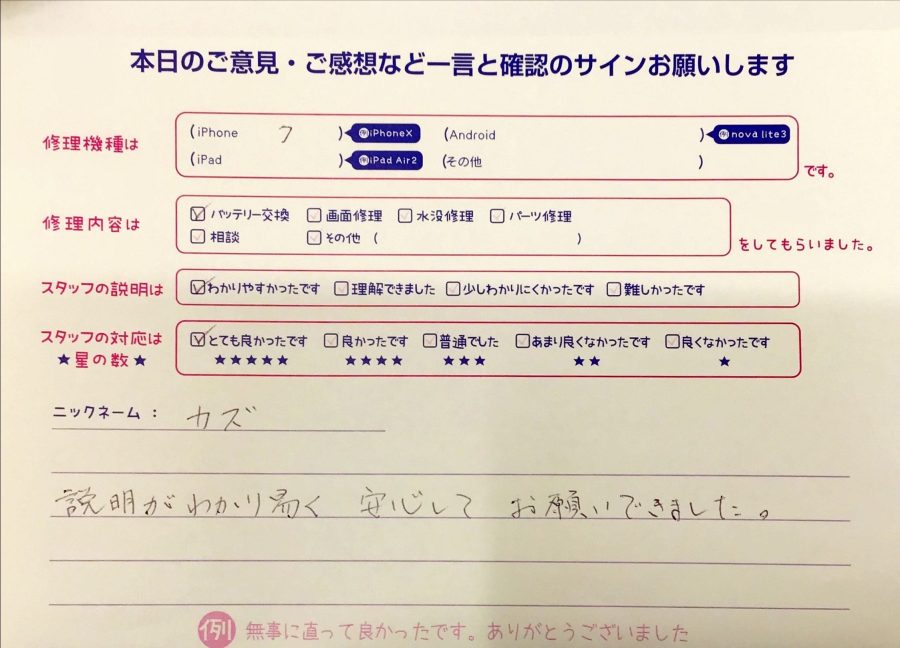 本日のご意見・ご感想など一言と確認のサインお願いします
修理機種は (iPhone 7 ) 例iPhoneX (Android ) 例nova lite3
(iPad ) 例iPad Air2 (その他 ) です。
修理内容は バッテリー交換 画面修理 水没修理 パーツ修理
相談 その他 ( ) をしてもらいました。
スタッフの説明は わかりやすかったです 理解できました 少しわかりにくかったです 難しかったです
スタッフの対応は とても良かったです 良かったです 普通でした あまり良くなかったです 良くなかったです
★星の数★ ★★★★★ ★★★★ ★★★ ★★ ★
ニックネーム： カズ
説明がわかり易く 安心して お願いできました。
例 無事に直って良かったです。ありがとうございました